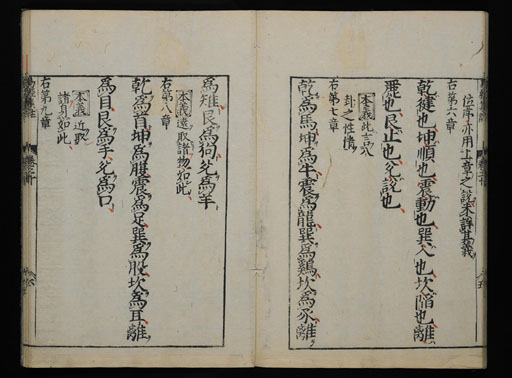 位序亦用上章之說未詳其義
右第六章
乾健也坤順也震動也巽入也坎陷也離
麗也艮止也兌說也
本義此言八
卦之性情
右第七章
乾爲馬坤爲牛震爲龍巽爲鷄坎爲豕離
爲雉艮爲狗兌爲羊
本義遠取諸物如此
右第八章
乾爲首坤爲腹震爲足巽爲股坎爲耳離
爲目艮爲手兌爲口
本義近取
諸身如此
右第九章